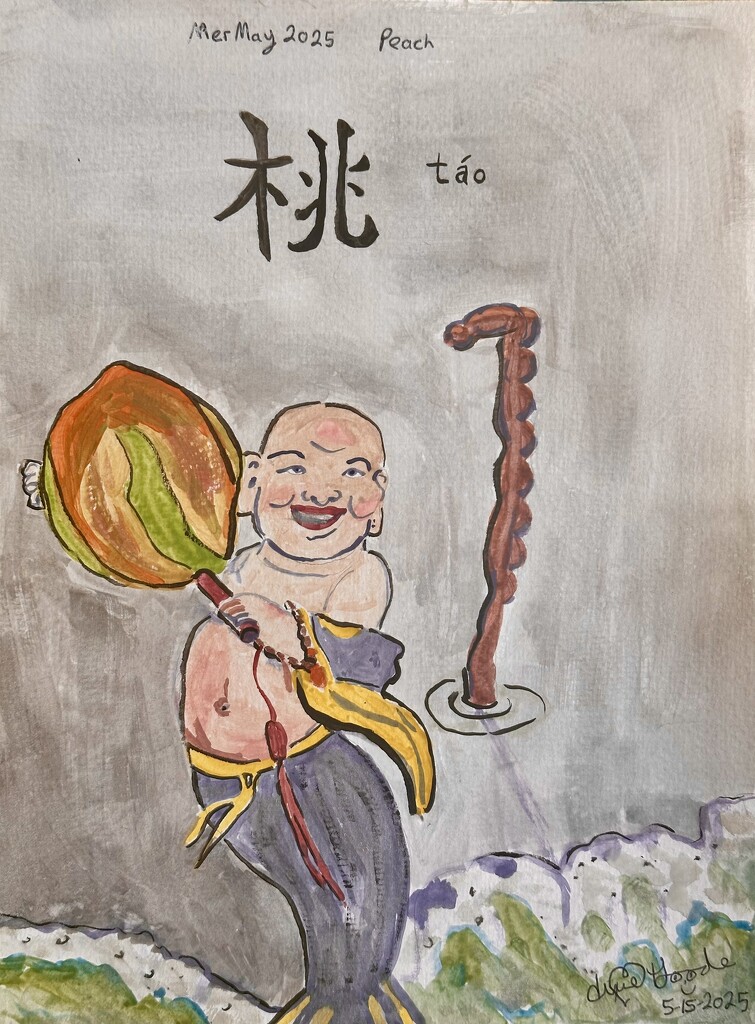 MerMay 2025 Peach
桃 táo
Goode
5-15-2025